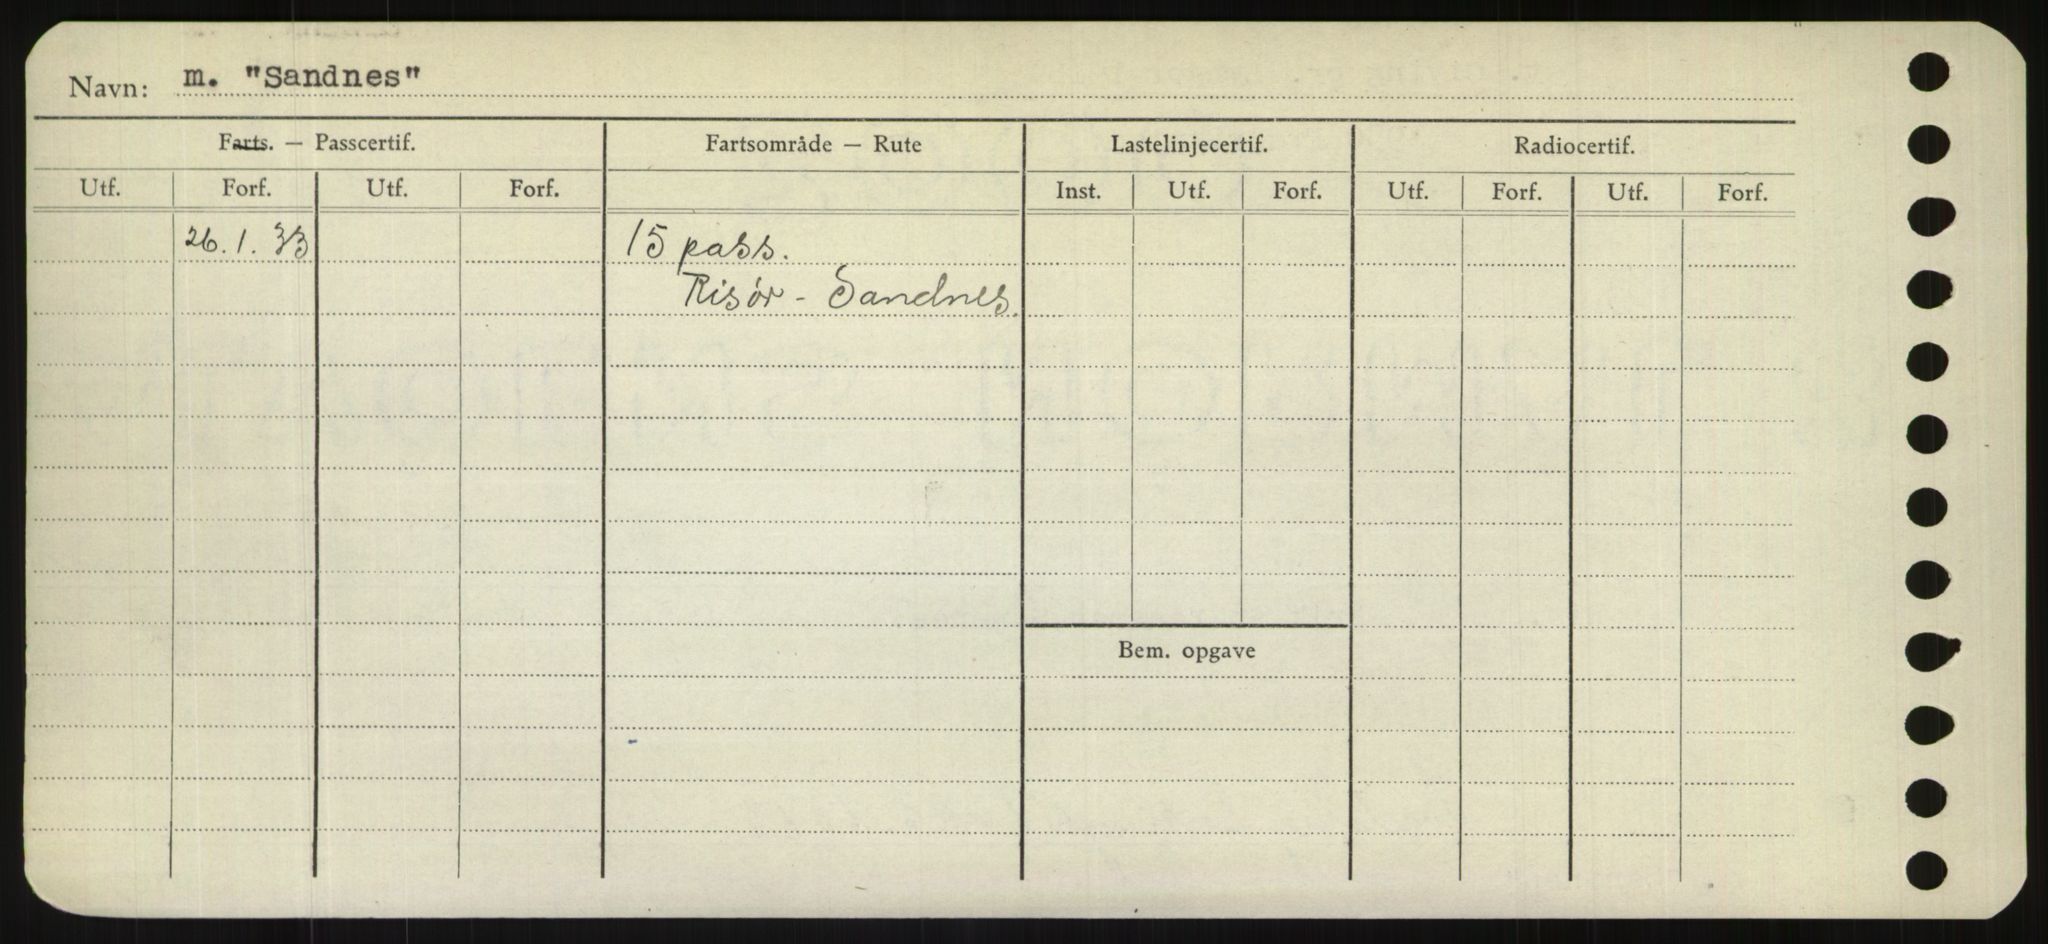 Navn: m. "Sandnes"
Farts. — Passcertif. Fartsområde — Rute Lastelinjecertif. Radiocertif.
Utf. Forf. Utf. Forf. Inst. Utf. Forf. Utf. Forf. Utf. Forf.
26. 1. 33 15 pass.
Risør - Sandnes.
Bem. opgave